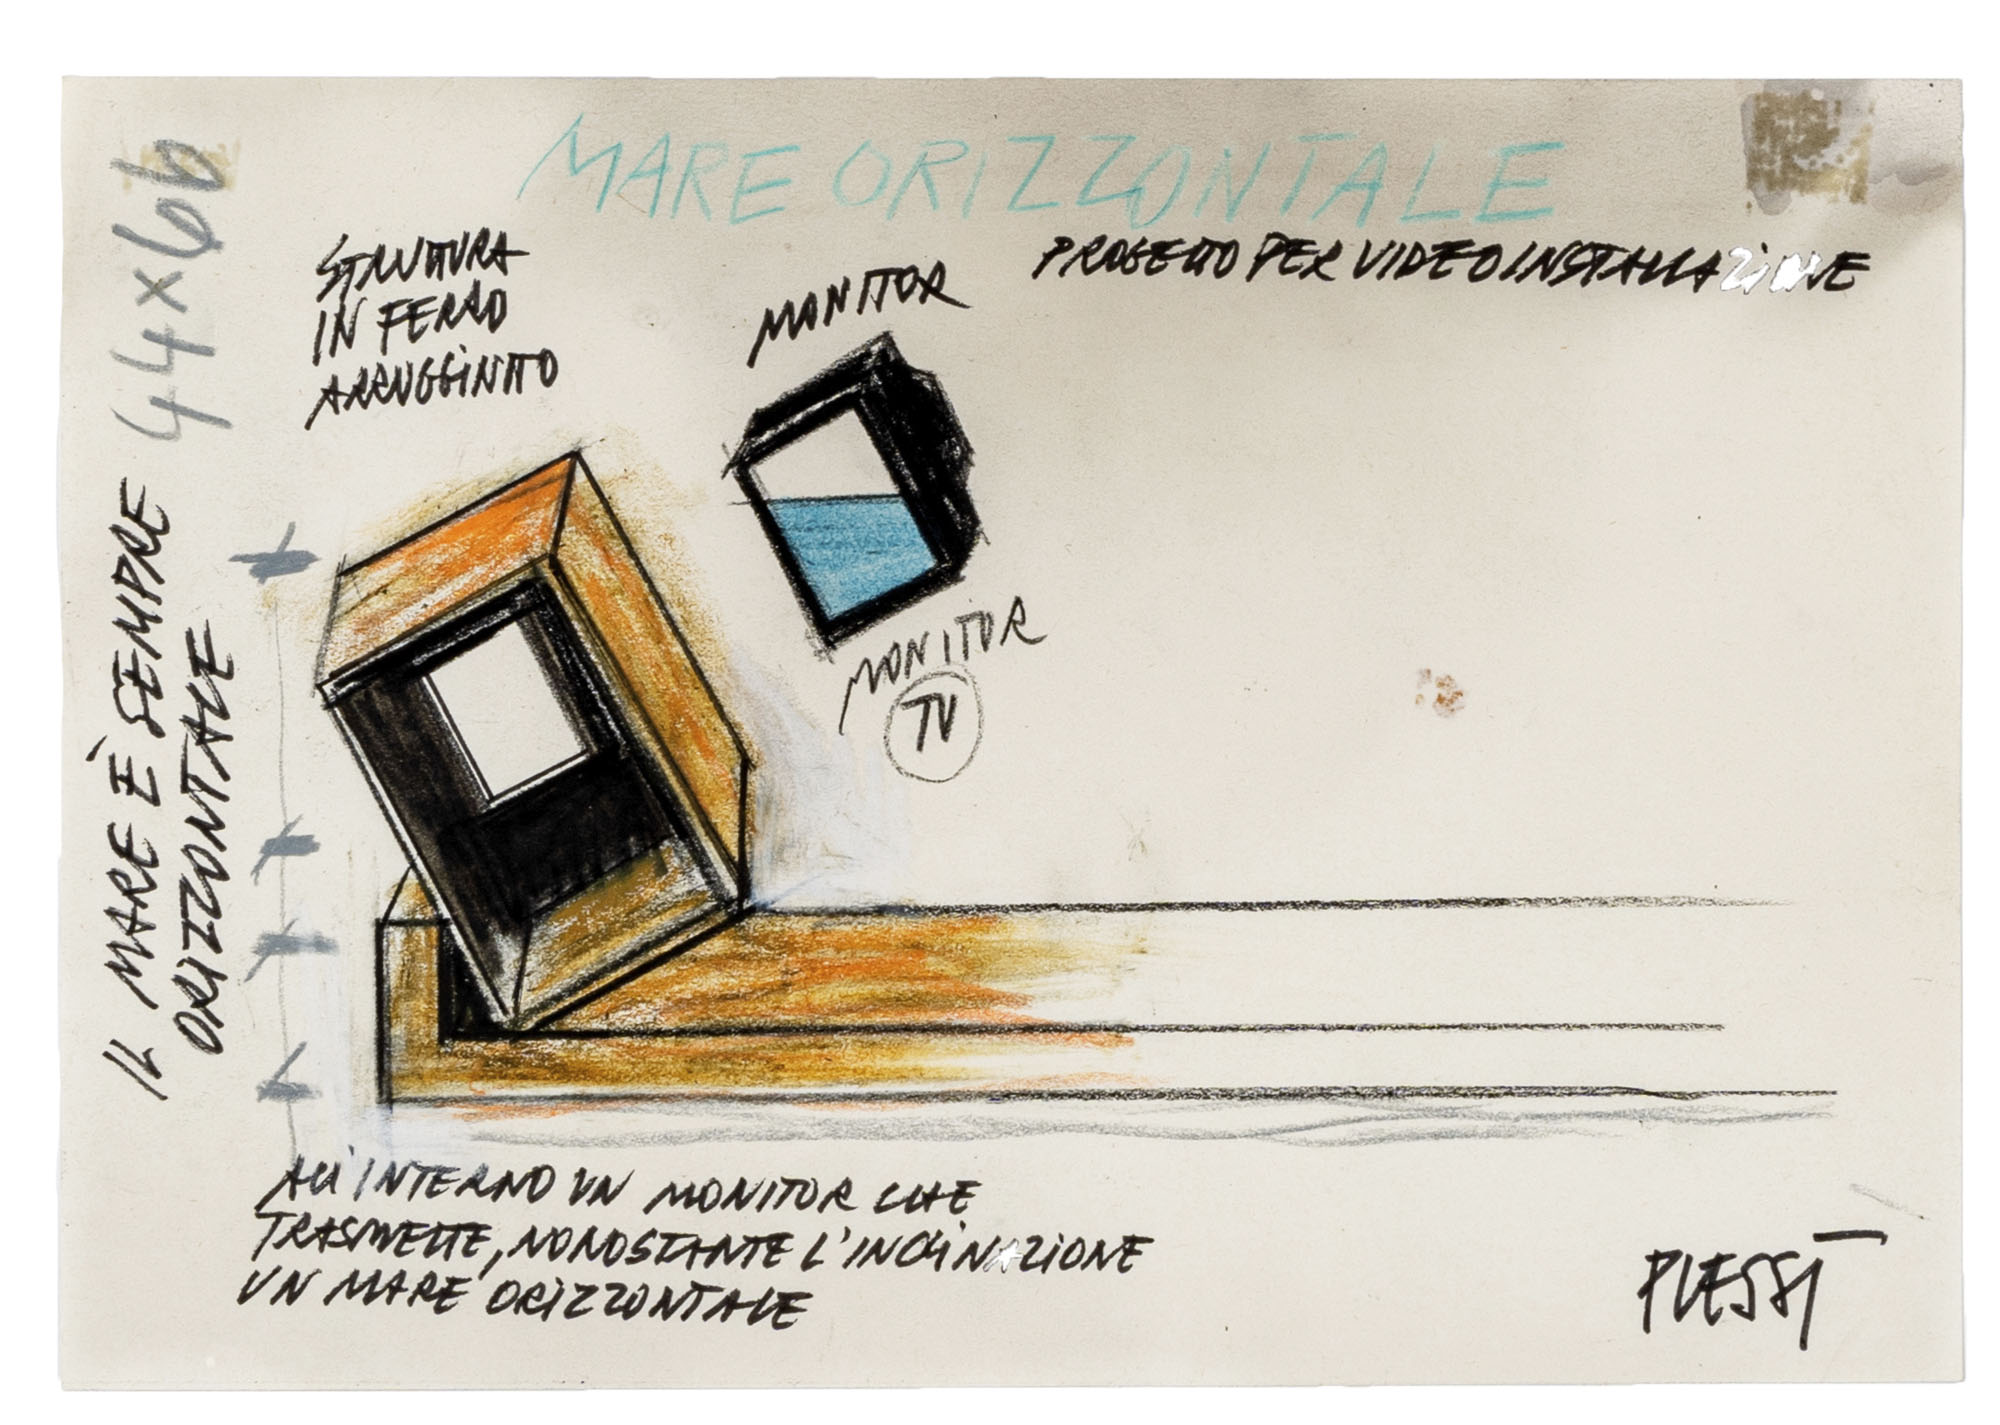 MARE ORIZZONTALE
PROGETTO PER VIDEOINSTALLAZIONE
STRUTTURA
IN FERRO
ARRUGGINITO
MONITOR
MONITOR
TV
44x66
IL MARE È SEMPRE
ORIZZONTALE
ALL'INTERNO UN MONITOR CHE
TRASMETTE, NONOSTANTE L'INCLINAZIONE
UN MARE ORIZZONTALE
PLESSI